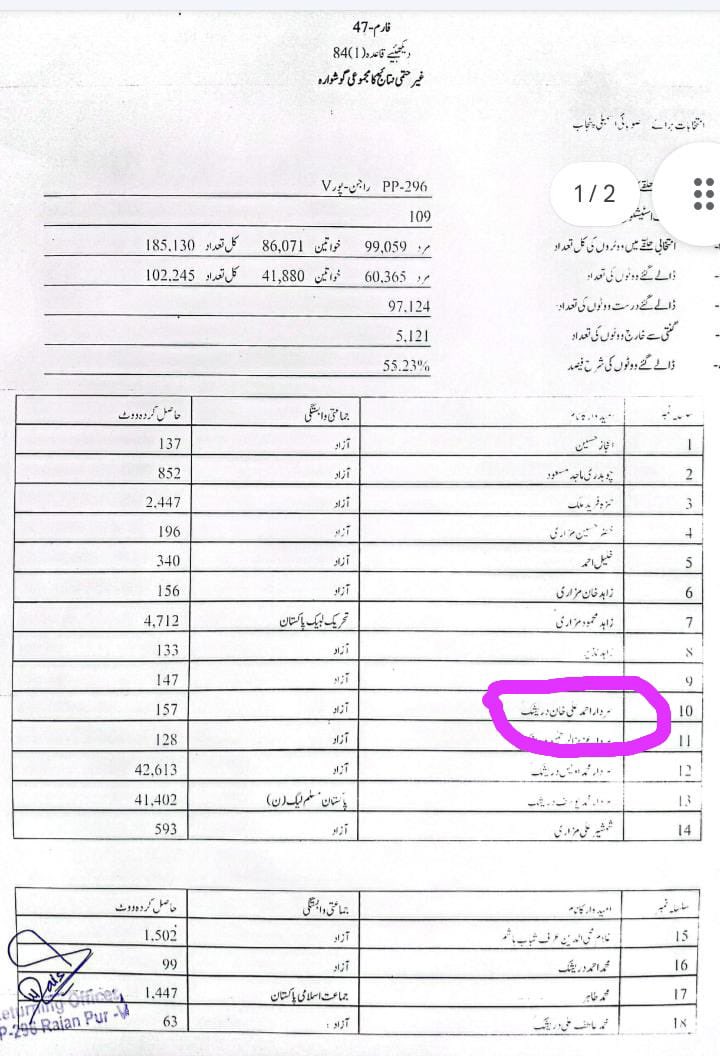 فارم-47
دیکھئیے قاعدہ (1)84
غیر حتمی نتائج کا مجموعی گوشوارہ
انتخابات برائے صوبائی اسمبلی پنجاب
PP-296 راجن-پور V
1/2
109
انتخابی حلقے میں ووٹروں کی کل تعداد مرد 99,059 خواتین 86,071 کل تعداد 185,130
ڈالے گئے ووٹوں کی تعداد مرد 60,365 خواتین 41,880 کل تعداد 102,245
ڈالے گئے درست ووٹوں کی تعداد 97,124
گنتی سے خارج ووٹوں کی تعداد 5,121
ڈالے گئے ووٹوں کی شرح فیصد 55.23%
سلسلہ نمبر امیدوار کا نام جماعتی وابستگی حاصل کردہ ووٹ
1 اعجاز حسین آزاد 137
2 چوہدری ماجد مسعود آزاد 852
3 حمزہ فرید ملک آزاد 2,447
4 حسین مزاری آزاد 196
5 خلیل احمد آزاد 340
6 زاہد خان مزاری آزاد 156
7 زاہد محمود مزاری تحریک لبیک پاکستان 4,712
8 آزاد 133
9 آزاد 147
10 سردار احمد علی خان دریشک آزاد 157
11 سردار آزاد 128
12 سردار محمد اویس دریشک آزاد 42,613
13 سردار محمد یوسف دریشک پاکستان مسلم لیگ (ن) 41,402
14 شمشیر علی مزاری آزاد 593
سلسلہ نمبر امیدوار کا نام جماعتی وابستگی حاصل کردہ ووٹ
15 غلام محی الدین عرف شہاب ہاشم آزاد 1,502
16 محمد احمد دریشک آزاد 99
17 محمد طاہر جماعت اسلامی پاکستان 1,447
18 محمد عاطف علی دریشک آزاد 63
Returning Officer
PP-296 Rajan Pur -V